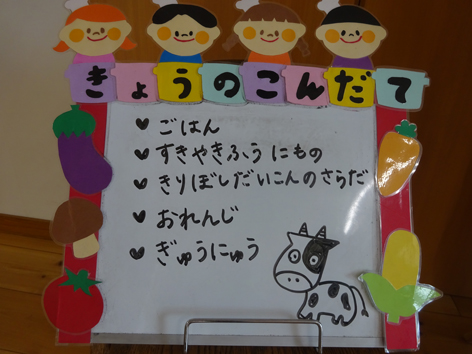 きょうのこんだて
♥ ごはん
♥ すきやきふうにもの
♥ きりぼしだいこんのさらだ
♥ おれんじ
♥ ぎゅうにゅう